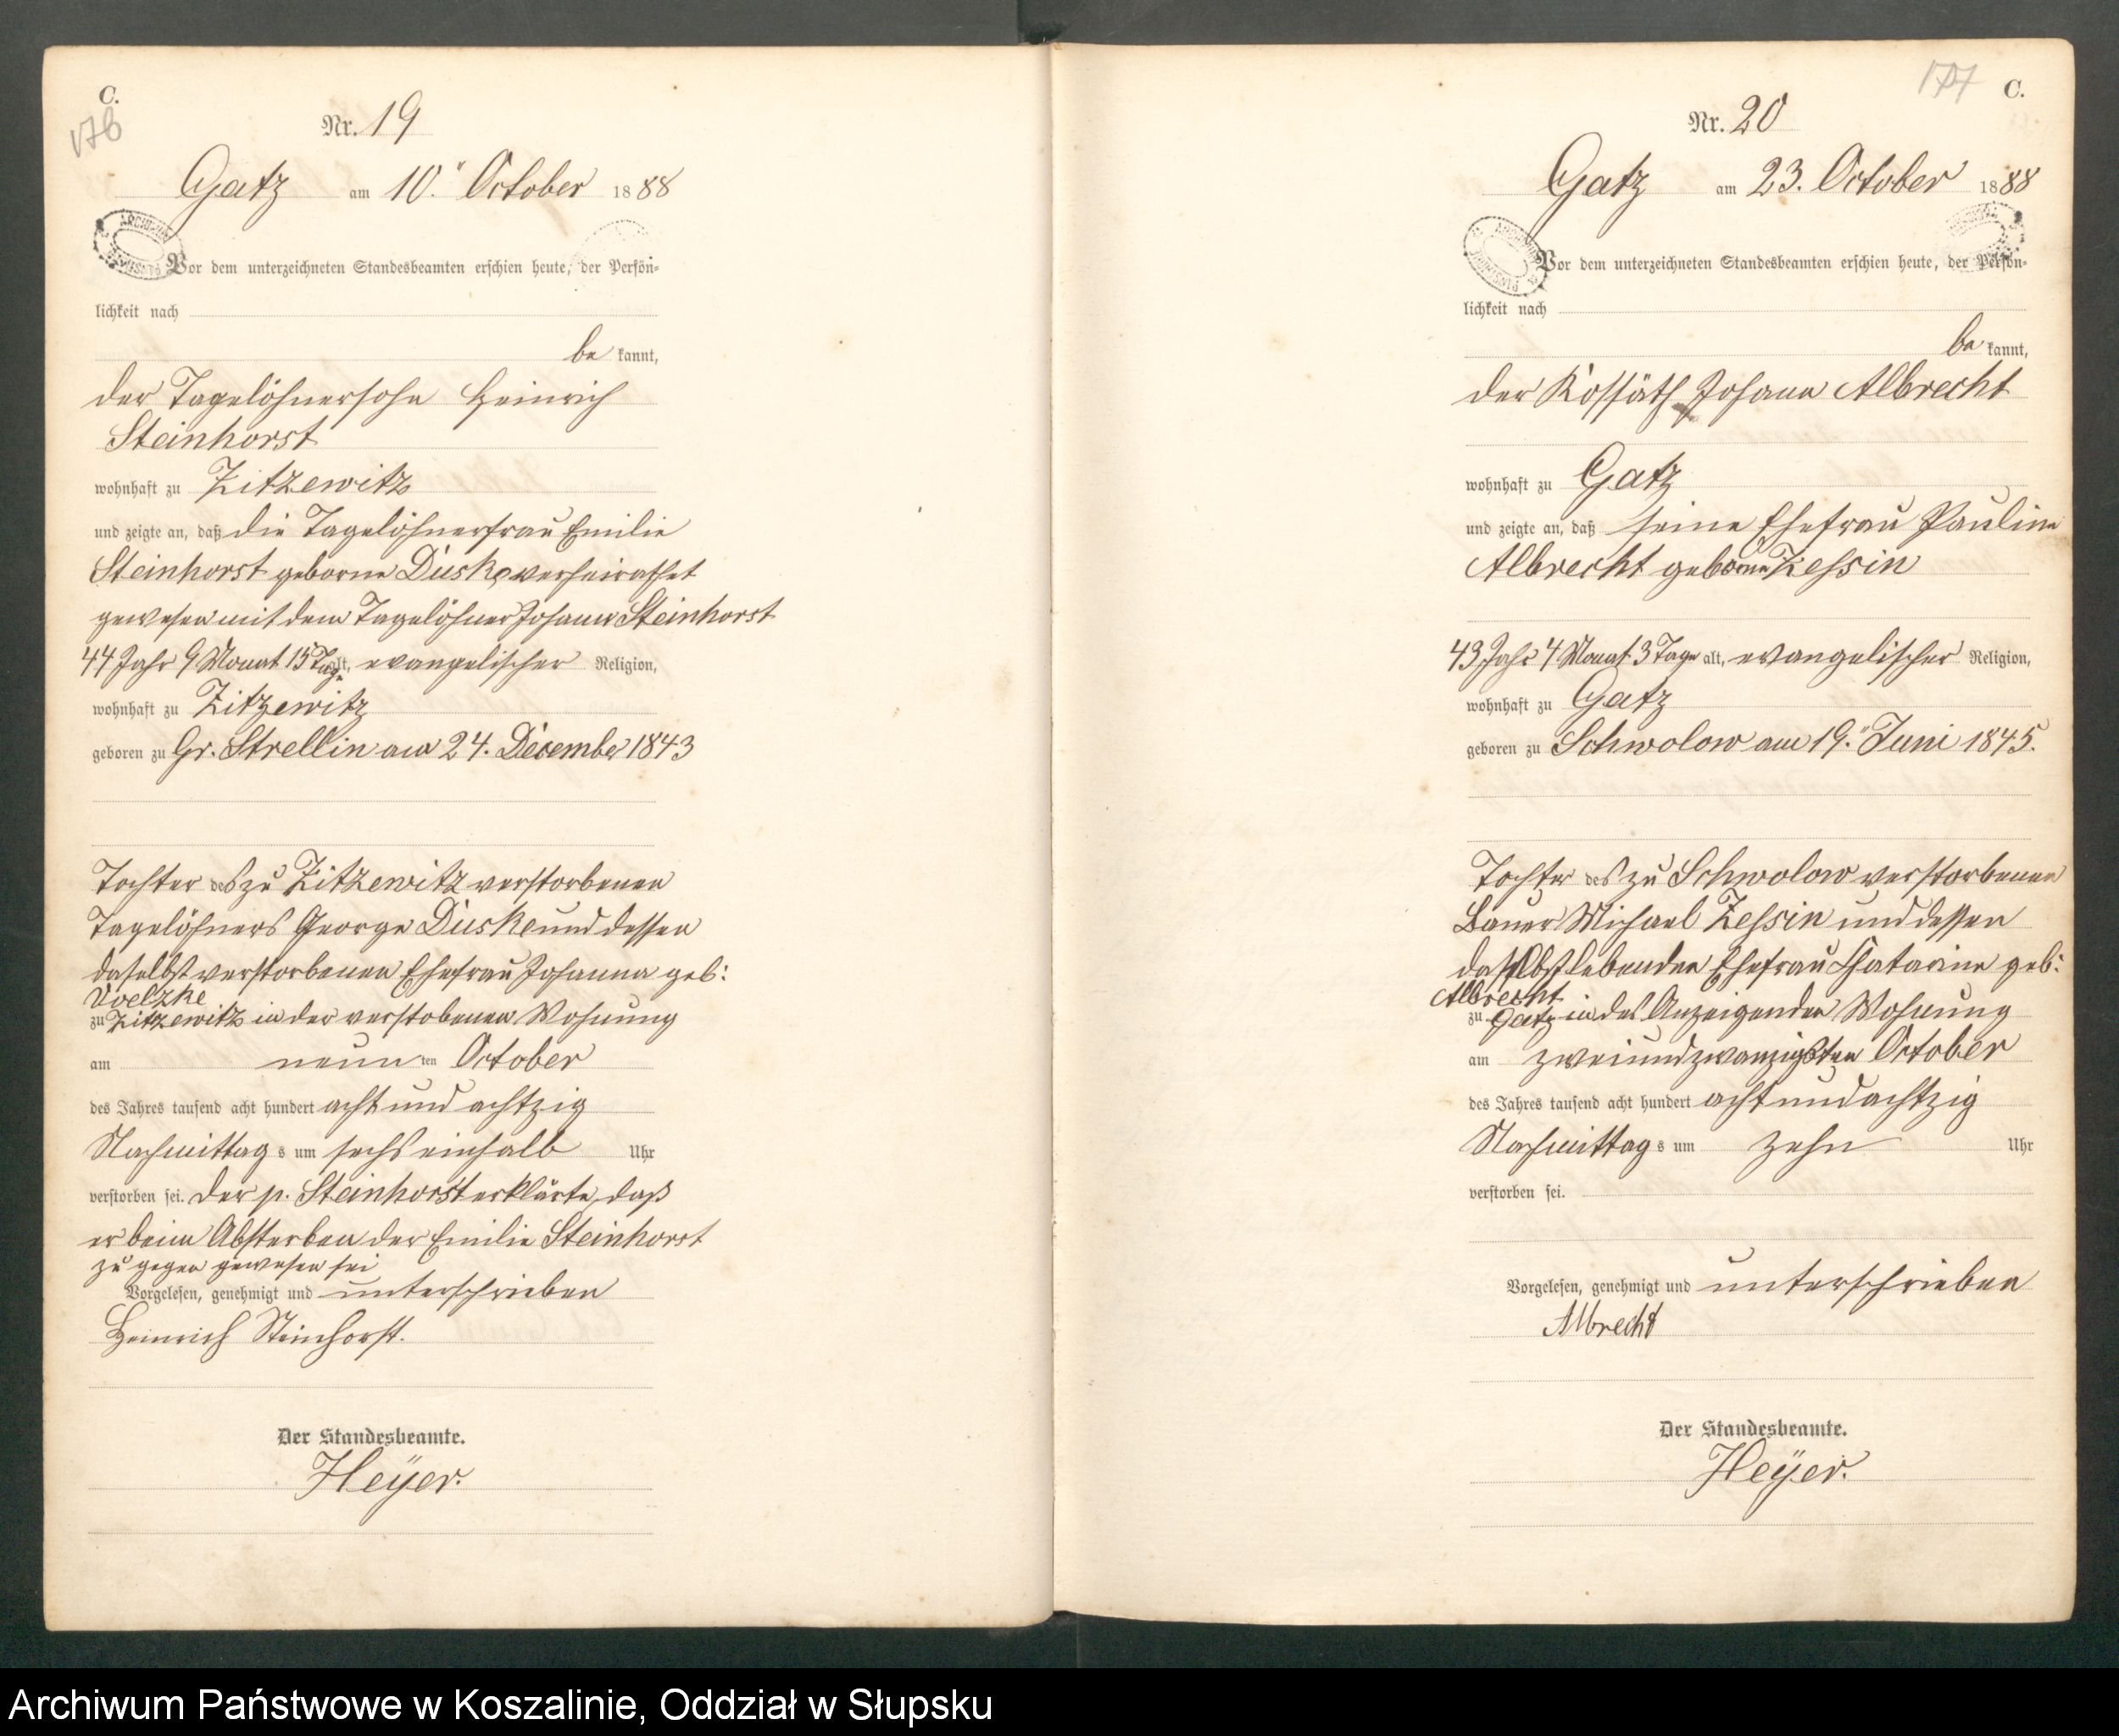 C.
176
Nr. 19
Gatz am 10. October 1888
Vor dem unterzeichneten Standesbeamten erschien heute, der Persön-
lichkeit nach
be kannt,
der Tagelöhnersohn Heinrich
Steinhorst
wohnhaft zu Zitzewitz
und zeigte an, daß die Tagelöhnerfrau Emilie
Steinhorst geborne Duske verheirathet
gewesen mit dem Tagelöhner Johann Steinhorst
44 Jahr 9 Monat 15 Tage alt, evangelischer Religion,
wohnhaft zu Zitzewitz
geboren zu Gr. Strellin am 24. December 1843
Tochter des zu Zitzewitz verstorbenen
Tagelöhners George Duske und dessen
daselbst verstorbenen Ehefrau Johanna geb:
Voelzke
zu Zitzewitz in der verstobenen Wohnung
am neun ten October
des Jahres tausend acht hundert acht und achtzig
Nachmittag s um sechs einhalb Uhr
verstorben sei. Der p. Steinhorst erklärte, daß
er beim Absterben der Emilie Steinhorst
zu gegen gewesen sei
Vorgelesen, genehmigt und unterschrieben
Heinrich Steinhorst.
Der Standesbeamte.
Heÿer.
177
C.
Nr. 20
Gatz am 23. October 1888
Vor dem unterzeichneten Standesbeamten erschien heute, der Persön-
lichkeit nach
be kannt,
der Kossäth Johann Albrecht
wohnhaft zu Gatz
und zeigte an, daß seine Ehefrau Pauline
Albrecht geborne Zessin
43 Jahr 4 Monat 3 Tage alt, evangelischer Religion,
wohnhaft zu Gatz
geboren zu Schwolow am 19. Juni 1845.
Tochter des zu Schwolow verstorbenen
Bauer Michael Zessin und dessen
daselbst lebenden Ehefrau Chatarine geb:
Albrecht
zu Gatz in des Anzeigenden Wohnung
am zweiundzwanzigsten October
des Jahres tausend acht hundert acht und achtzig
Nachmittag s um zehn Uhr
verstorben sei.
Vorgelesen, genehmigt und unterschrieben
Albrecht
Der Standesbeamte.
Heÿer.
Archiwum Państwowe w Koszalinie, Oddział w Słupsku